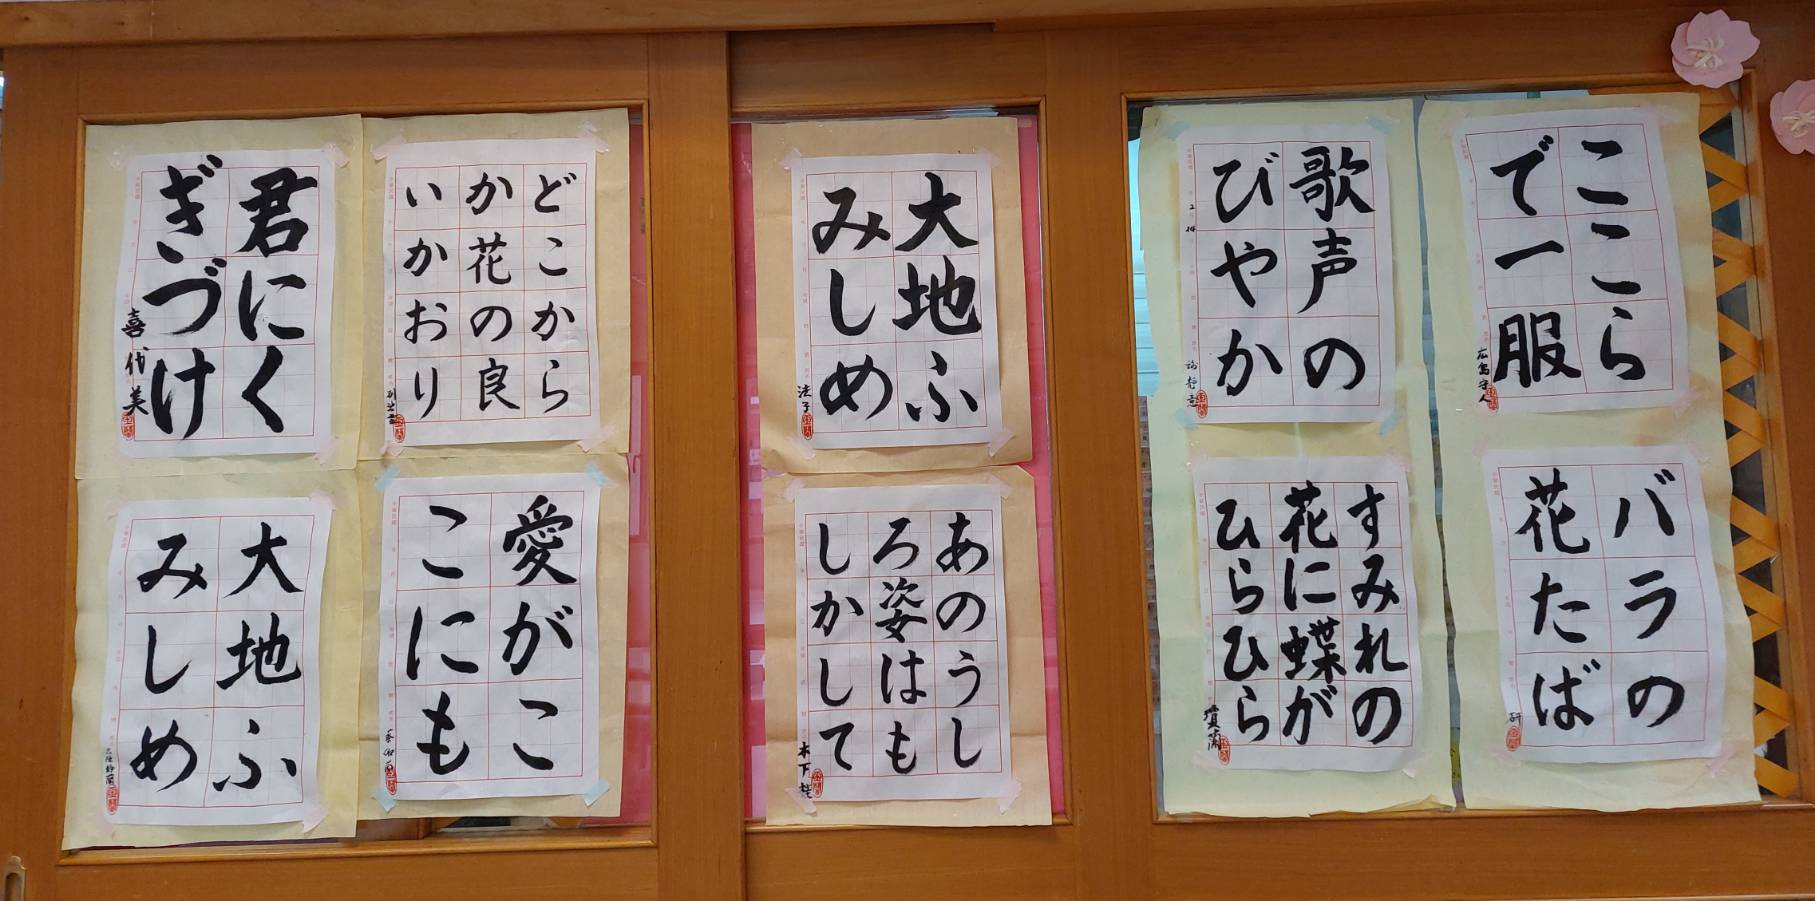 ここら
で一服
広島守人
バラの
花たば
研
歌声の
びやか
すみれの
花に蝶が
ひらひら
大地ふ
みしめ
法子
あのうし
ろ姿はも
しかして
木下
どこから
か花の良
いかおり
愛がこ
こにも
君にく
ぎづけ
喜代美
大地ふ
みしめ